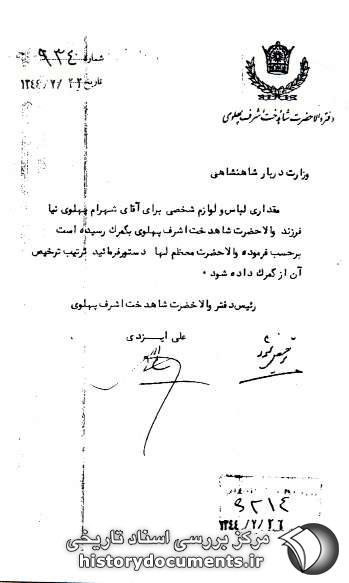 شماره ۹۳۴
تاریخ ۱۳۴۴/۲/۲۲
دفتر والاحضرت شاهدخت اشرف پهلوی
وزارت دربار شاهنشاهی
مقداری لباس و لوازم شخصی برای آقای شهرام پهلوی نیا
فرزند والاحضرت شاهدخت اشرف پهلوی بگمرک رسیده است
برحسب فرموده والاحضرت معظم لها دستورفرمائید ترتیب ترخیص
آن از گمرک داده شود ۰
رئیس دفتر والاحضرت شاهدخت اشرف پهلوی
علی ایزدی
ترخیص شود
۹۲۱۴
۱۳۴۴/۲/۲۶
مرکز بررسی اسناد تاریخی
historydocuments.ir